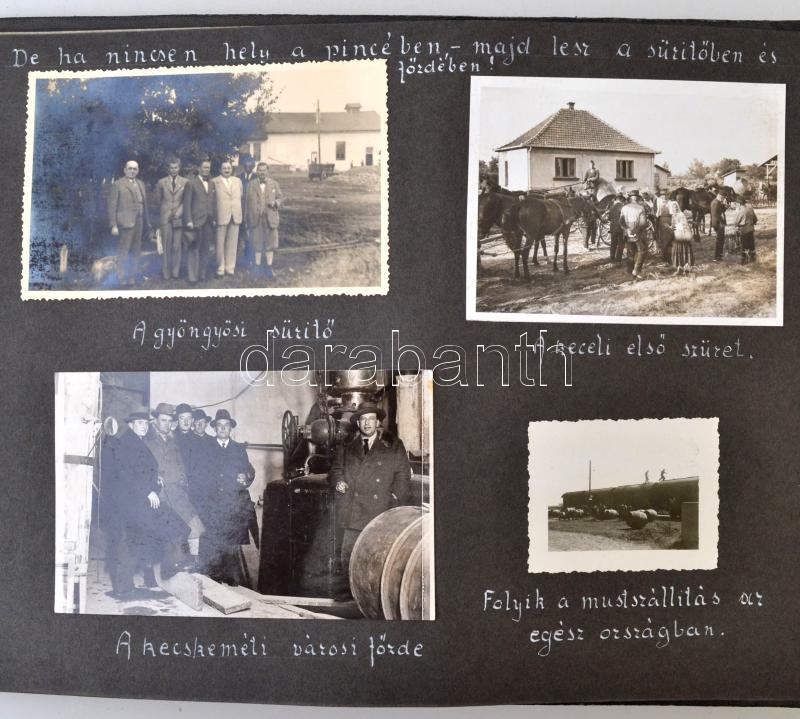 De ha nincsen hely a pincében,- majd lesz a sűritőben és
fürdében!
A gyöngyösi sűritő
A keceli első szüret.
darabanth
A kecskeméti városi fürde
Folyik a mustszállitás az
egész országban.